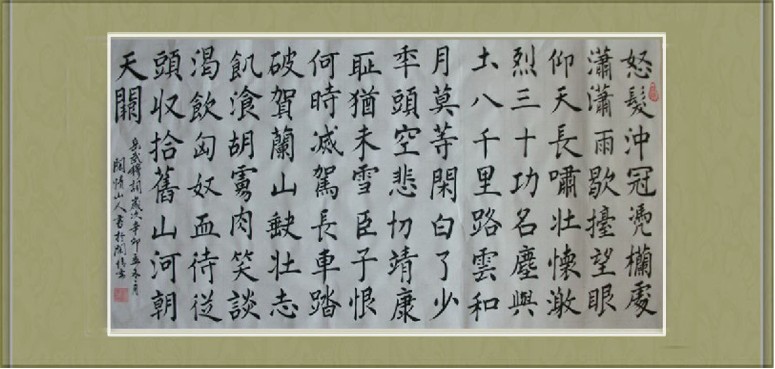 怒髮沖冠凴欄處
瀟瀟雨歇擡望眼
仰天長嘯壯懷激
烈三十功名塵與
土八千里路雲和
月莫等閑白了少
年頭空悲切靖康
耻猶未雪臣子恨
何時滅駕長車踏
破賀蘭山缺壯志
飢湌胡虜肉笑談
渴飲匈奴血待從
頭收拾舊山河朝
天闕
岳武穆詞歲次辛卯孟冬
山人書於